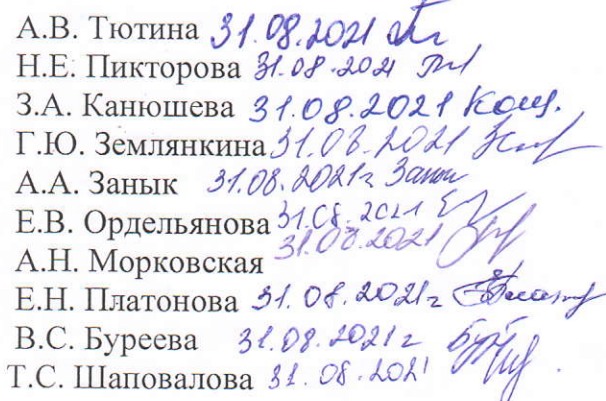 А.В. Тютина 31.08.2021
Н.Е. Пикторова 31.08.2021
З.А. Канюшева 31.08.2021 Кош.
Г.Ю. Землянкина 31.08.2021
А.А. Занык 31.08.2021г Занык
Е.В. Ордельянова 31.08.2021
А.Н. Морковская 31.08.2021
Е.Н. Платонова 31.08.2021г
В.С. Буреева 31.08.2021г
Т.С. Шаповалова 31.08.2021